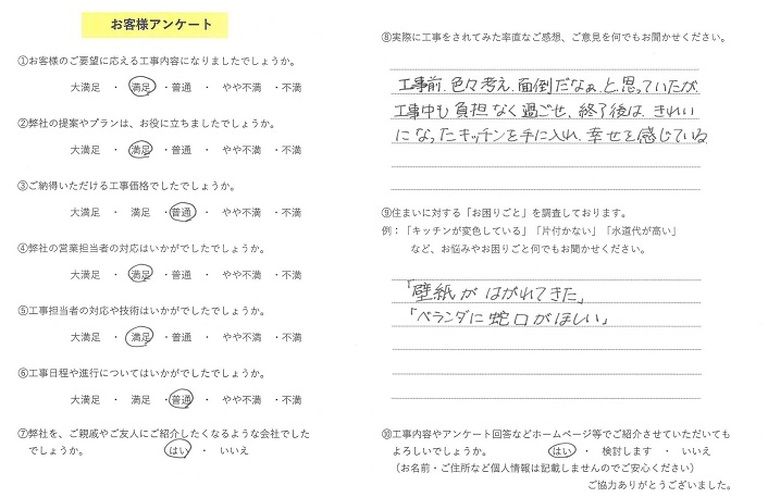 お客様アンケート
①お客様のご要望に応える工事内容になりましたでしょうか。
大満足 ・ 満足 ・普通 ・ やや不満 ・不満
②弊社の提案やプランは、お役に立ちましたでしょうか。
大満足 ・ 満足 ・普通 ・ やや不満 ・不満
③ご納得いただける工事価格でしたでしょうか。
大満足 ・ 満足 ・普通 ・ やや不満 ・不満
④弊社の営業担当者の対応はいかがでしたでしょうか。
大満足 ・ 満足 ・普通 ・ やや不満 ・不満
⑤工事担当者の対応や技術はいかがでしたでしょうか。
大満足 ・ 満足 ・普通 ・ やや不満 ・不満
⑥工事日程や進行についてはいかがでしたでしょうか。
大満足 ・ 満足 ・普通 ・ やや不満 ・不満
⑦弊社を、ご親戚やご友人にご紹介したくなるような会社でした
でしょうか。 はい ・ いいえ
⑧実際に工事をされてみた率直なご感想、ご意見を何でもお聞かせください。
工事前、色々考え、面倒だなぁ、と思っていたが
工事中も負担なく過ごせ、終了後は、きれい
になったキッチンを手に入れ、幸せを感じている
⑨住まいに対する「お困りごと」を調査しております。
例：「キッチンが変色している」「片付かない」「水道代が高い」
など、お悩みやお困りごと何でもお聞かせください。
「壁紙がはがれてきた」
「ベランダに蛇口がほしい」
⑩工事内容やアンケート回答などホームページ等でご紹介させていただいても
よろしいでしょうか。 はい ・ 検討します ・ いいえ
（お名前・ご住所など個人情報は記載しませんのでご安心ください）
ご協力ありがとうございました。